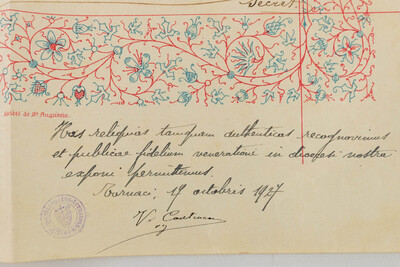 secret.
Société de St. Augustin.
Has reliquias tamquam authenticas recognovimus
et publicae fidelium venerationi in dioecesi nostra
exponi permittimus.
Tornaci, 19 octobris 1927
V.